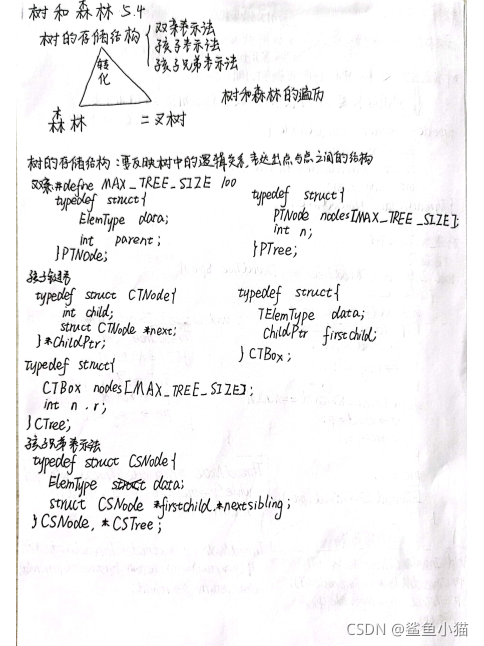 树和森林 5.4
树的存储结构 { 双亲表示法
孩子表示法
孩子兄弟表示法
转化
森林
二叉树
树和森林的遍历
树的存储结构:要反映树中的逻辑关系,表达出点与点之间的结构
双亲#define MAX_TREE_SIZE 100
typedef struct{
ElemType data;
int parent;
}PTNode;
typedef struct{
PTNode nodes[MAX_TREE_SIZE];
int n;
}PTree;
孩子链表
typedef struct CTNode{
int child;
struct CTNode *next;
}*ChildPtr;
typedef struct{
TElemType data;
ChildPtr firstchild;
}CTBox;
typedef struct{
CTBox nodes[MAX_TREE_SIZE];
int n.r;
}CTree;
孩子兄弟表示法
typedef struct CSNode{
ElemType data;
struct CSNode *firstchild.*nextsibling;
}CSNode, *CSTree;
CSDN @鲨鱼小猫